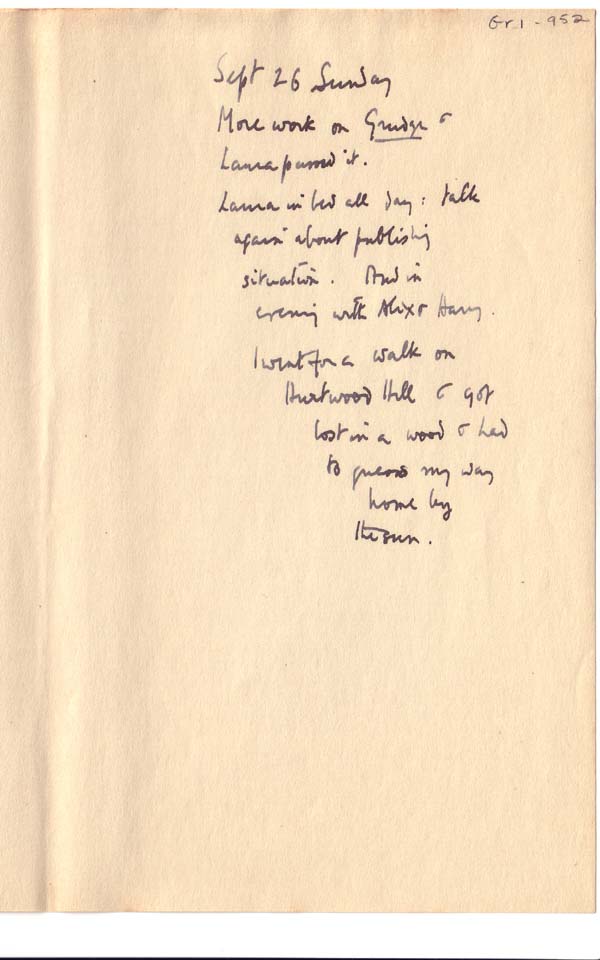 Gr.1 - 952
Sept 26 Sunday
More work on Grudge &
Laura passed it.
Laura in bed all day: talk
again about publishing
situation. And in
evening with Alix & Harry.
I went for a walk on
Hurtwood Hill & got
lost in a wood & had
to guess my way
home by
the sun.